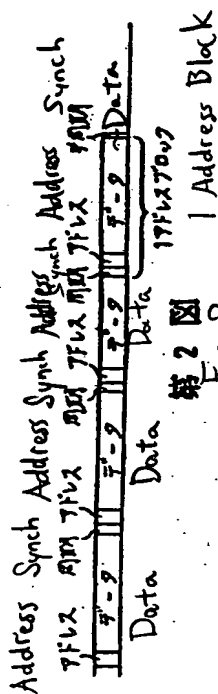 Address Synch Address Synch Address Synch Address Synch
アドレス 同期 アドレス 同期 アドレス 同期 アドレス 同期
データ データ データ データ Data
Data Data Data
1アドレスブロック
第2図 1 Address Block